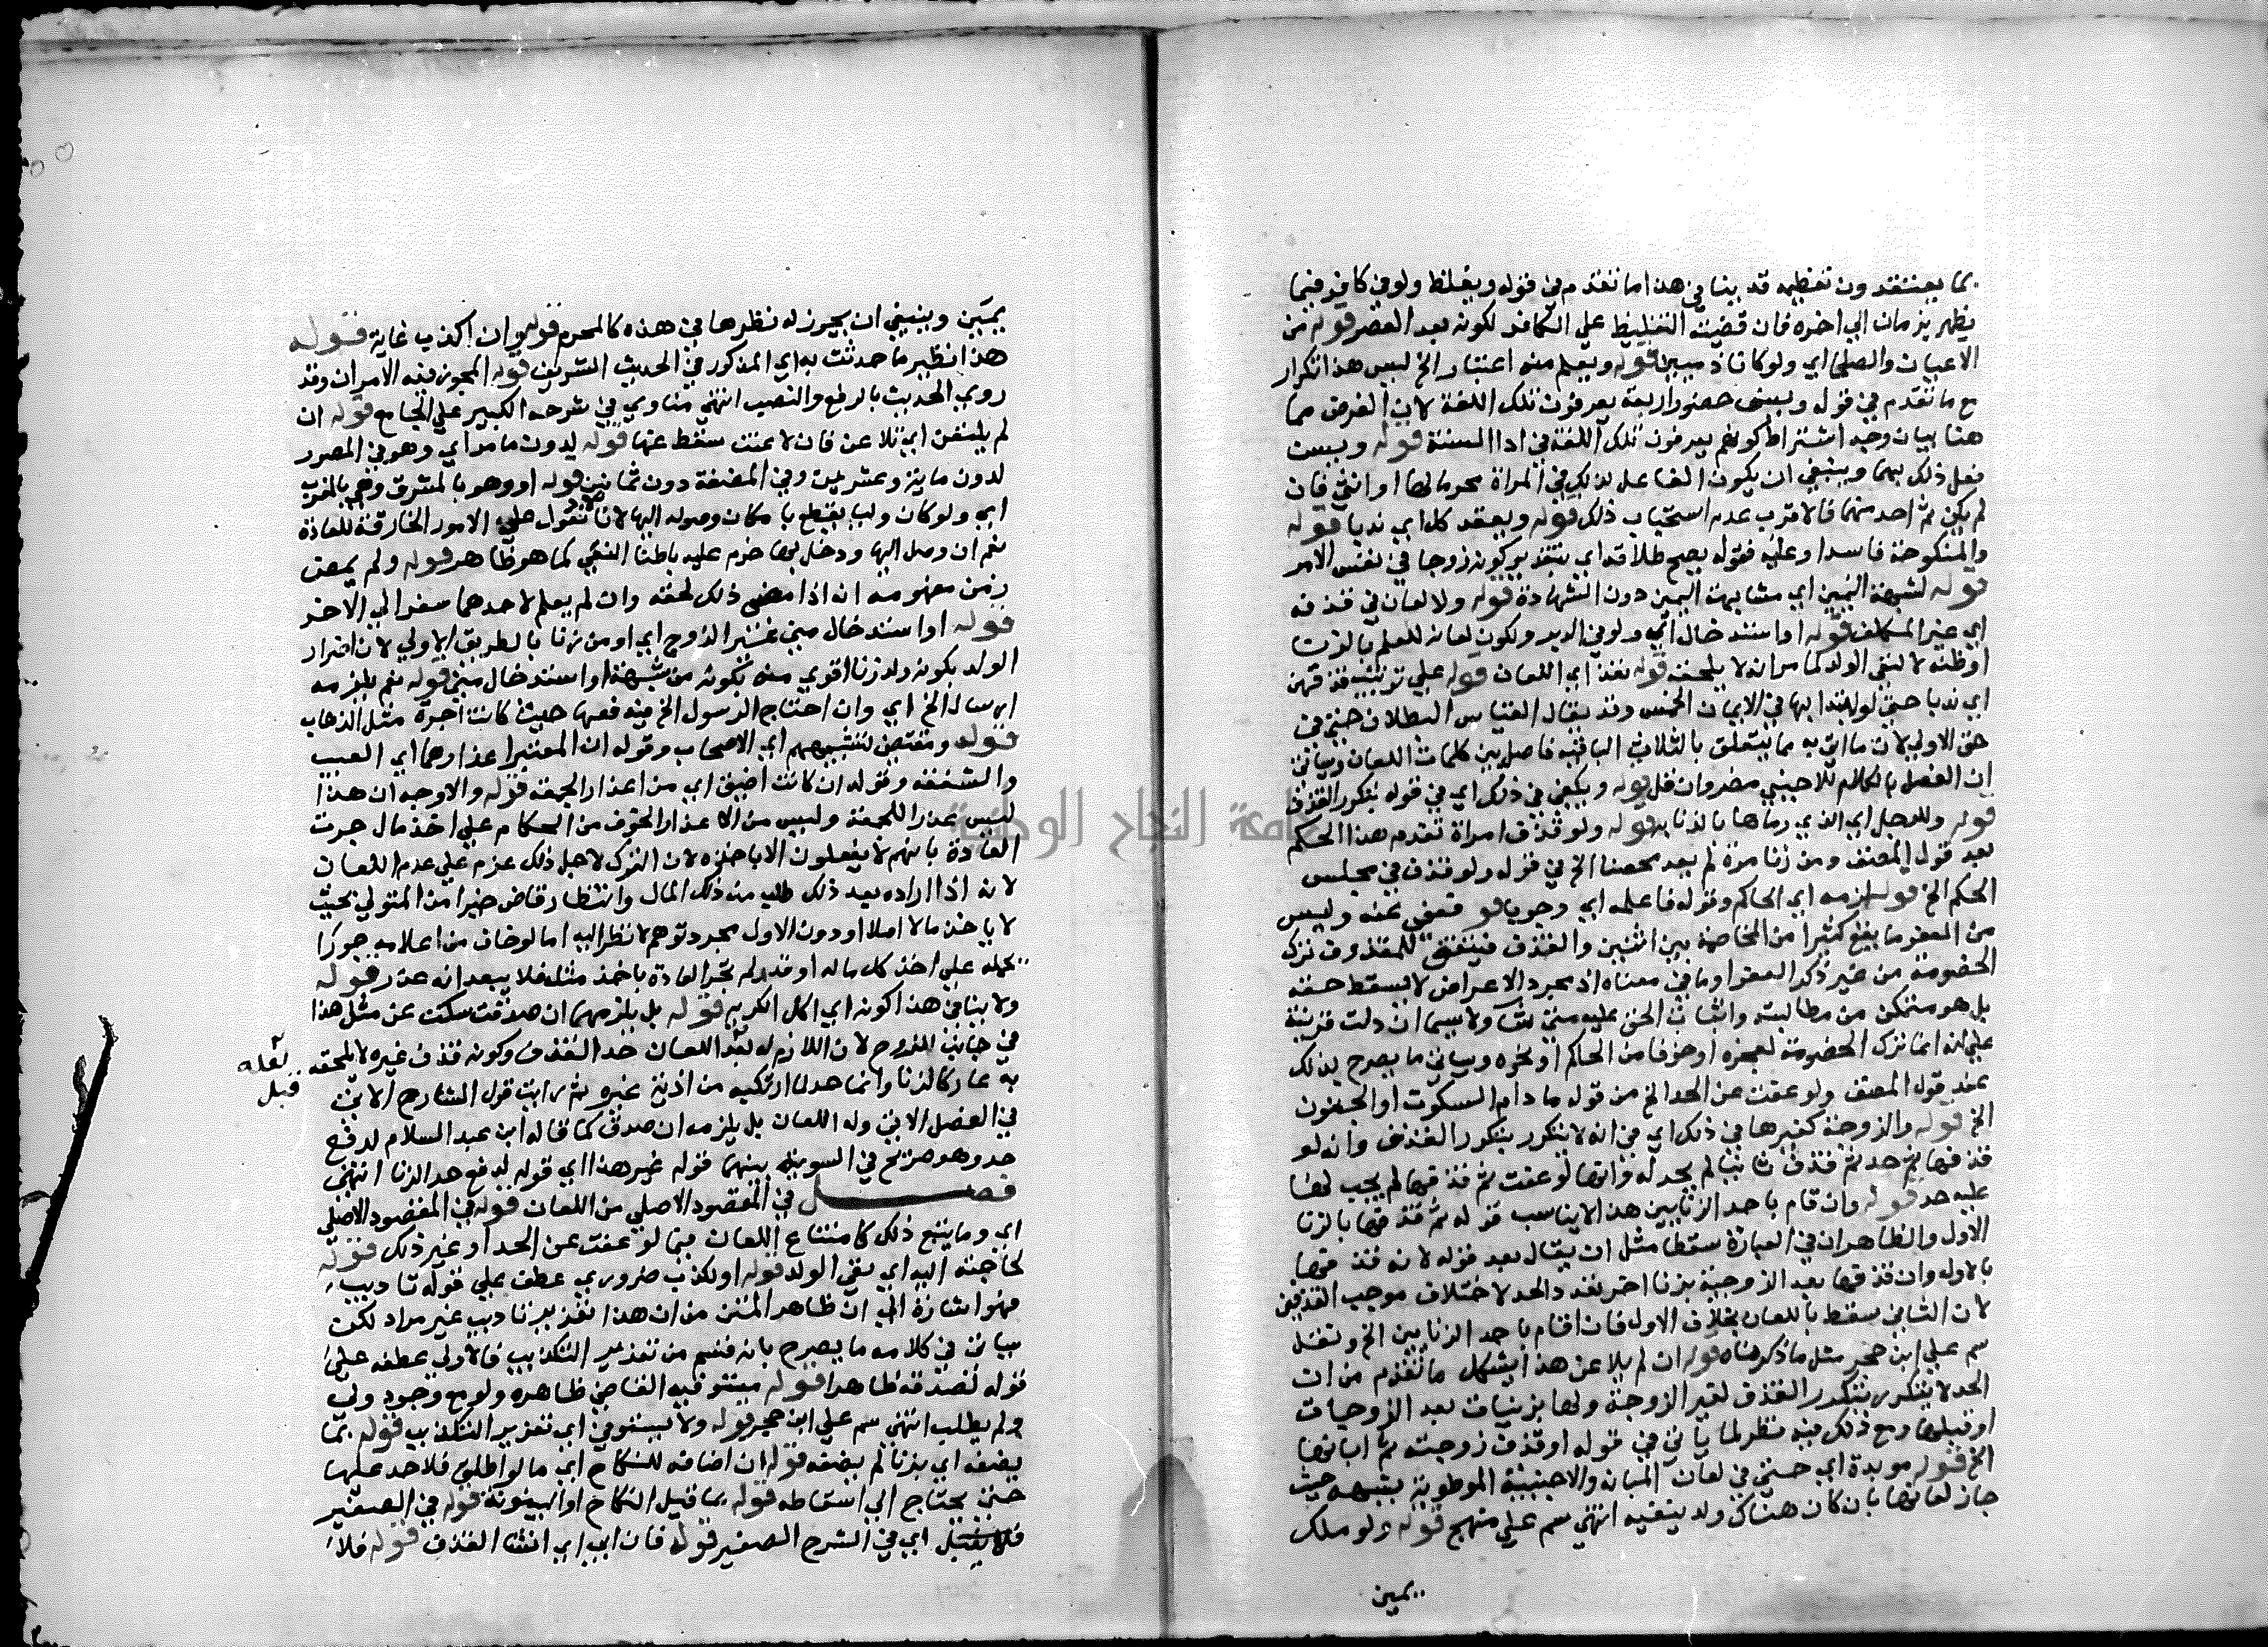 بما يعتقدون تعظيمه قد ينافي هذا ما تقدم في قوله ويغلظ ولو في كافر فيما
يظهر بزمان الى اخره فان قضيته التغليظ على الكافر لكونه بعد العصر قوله من
الاعيان والصلحا اي ولو كانا ذميين قوله ويعلم منه اعتبار الخ ليس هذا تكرار
مع ما تقدم في قوله ويسن حضور اربعة يعرفون تلك اللغة لان الغرض مما
هنا بيان وجه اشتراط كونهم يعرفون تلك اللغة في ادا السنة قوله ويسن
فعل ذلك بهما وينبغي ان يكون الفاعل لذلك في المراة محرما لها او انثى فان
لم يكن ثم احد منهما فالاقرب عدم استحباب ذلك قوله ويعقد كل اي ندبا قوله
والمنكوحة فاسدا وعليه فقوله يصح طلاقه اي بتقدير كونه زوجا في نفس الامر
قوله لشبهة اليمين اي مشابهة اليمين دون الشهادة قوله ولا لعان في قذفه
اي غير المكلف قوله او استدخال اي ولو في الدبر ويكون لعانه للعلم بالزنا
او ظنه لا لنفي الولد كما مر انه لا يلحقه قوله نفذ اي اللعان قوله على ترتيب قذفهن
اي ندبا حتى لو ابتدا بها في الايمان الخمس وقد يقال القياس البطلان حتى في
حق الاولى لان ما اتى به مما يتعلق بالثلاث الباقية فاصل بين كلمات اللعان وسياتي
ان الفصل بالكلام الاجنبي مضر وان قل قوله ويكفي في ذلك اي في قوله يتكرر القذف
قوله وللرجل اي الذي رماها بالزنا به قوله ولو قذف امراة تقدم هذا الحكم
بعد قول المصنف ومن زنا مرة لم يعد محصنا الخ في قوله ولو قذف في مجلس
الحكم الخ قوله لزمه اي الحاكم وقوله فاعلمه اي وجوبا قو فعفى عنه وليس
من العفو ما يقع كثيرا من المخاصمة بين اثنين والقذف فيتفق للمقذوف ترك
الخصومة من غير ذكر العفو او ما في معناه اذ مجرد الاعراض لا يسقط حقه
بل هو متمكن من مطالبته واثبات الحق عليه متى شا ولا سيما ان دلت قرينة
على انه انما ترك الخصومة لعجزه او خوفا من الحاكم او نحوه وسياتي ما يصرح بذلك
عند قول المصنف ولو عفت عن الحد الخ من قوله ما دام السكوت او الجنون
الخ قوله والزوجة كغيرها في ذلك اي في انه لا يتكرر بتكرر القذف وانه لو
قذفها ثم حد ثم قذف ثانيا لم يحد له وانها لو عفت ثم قذفها لم يجب لها
عليه حد قوله وان قام باحد الزنايين هذا لا يناسب قوله ثم قذفها بالزنا
الاول والظاهر ان في العبارة سقطا مثل ان يقال بعد قوله لانه قذفها
بالاول وان قذفها بعد الزوجية بزنا اخر تعدد الحد لاختلاف موجب القذفين
لان الثاني سقط باللعان بخلاف الاول فان اقام باحد الزنايين الخ ونقل
سم على ابن حجر مثل ما ذكرناه قوله ان لم يلا عن هذا يشكل ما تقدم من ان
الحد لا يتكرر بتكرر القذف لغير الزوجة ولها بزنيات بعد الزوجيات
او قبلها ومع ذلك فيه نظر لما ياتي في قوله او قذف زوجته ثم ابانها
الخ قوله موبدة اي حتى في لعان المبانه والاجنبية الموطوءة بشبهه حيث
جاز لعانها بان كان هناك ولد ينفيه انتهى سم على منهج قوله ولو ملك
يمين
يمين وينبغي ان يجوز له نظرها في هذه كالمحرم قوله وان اكذب غاية قوله
هذا نظير ما حدثت به اي المذكور في الحديث الشريف قوله المجوز فيه الامران وقد
روي الحديث بالرفع والنصب انتهى مناوي في شرحه الكبير على الجامع قوله ان
لم يلتعن اي تلاعن فان لاعنت سقط عنها قوله لدون ما مر اي وهو في المصور
لدون ماية وعشرين وفي المضغة دون ثمانين قوله او وهو بالمشرق وهي بالمغرب
اي ولو كان وليا يقطع بامكان وصوله اليها لانا لا نعول على الامور الخارقة للعادة
نعم ان وصل اليها ودخل بها حرم عليه باطنا النفي كما هو ظاهر قوله ولم يمض
زمن مفهومه انه اذا مضى ذلك لحقه وان لم يعلم لاحدهما سفر الى الاخر
قوله او استدخال مني غير الزوج اي او من زنا بالطريق الاولى لان اضرار
الولد بكونه ولد زنا اقوى منه بكونه من شبهة او استدخال مني قوله نعم يلزمه
ارسال الخ اي وان احتاج الرسول الخ فيه فمها حيث كانت اجرة مثل الذهاب
قوله ومقتضى تشبيههم اي الاصحاب وقوله ان المعتبر اعذارهما اي العيب
والشفعة وقوله ان كانت اضيق اي من اعذار الجمعة قوله والاوجه ان هذا
ليس عذر للجمعة وليس من الاعذار الخوف من الحكام على اخذ مال جرت
العادة بانهم لا يفعلون الا باخذه لان الترك لاجل ذلك عزم على عدم اللعان
لانه اذا اراده بعد ذلك طلب منه ذلك المال وانتظار قاض خيرا من المتولي بحيث
لا ياخذ مالا اصلا او دون الاول مجرد توهم لا نظر اليه اما لو خاف من اعلامه جورا
يحمله على اخذ كل ماله او قدر لم تجر العادة باخذ مثله فلا يبعد انه عذر قوله
ولا ينافي هذا كونه اي اكل الكريه قوله بل يلزمها ان صدقت سكت عن مثل هذا
في جانب الزوج لان اللازم له بعد اللعان حد القذف وكونه قذف غيره لا يلحقه
لعله
قبل
به عار كالزنا وانما حد لما ارتكبه من اذية غيره ثم رايت قول الشارح الاتي
في الفصل الاتي وله اللعان بل يلزمه ان صدق كما قاله ابن عبد السلام لدفع
حد وهو صريح في التسوية بينهما قوله غير هذا اي قوله لدفع حد الزنا انتهى
فصل في المقصود الاصلي من اللعان قوله في المقصود الاصلي
اي وما يتبع ذلك كامتناع اللعان فيما لو عفت عن الحد او غير ذلك قوله
لحاجته اليه اي نفي الولد قوله او لكذب ضروري عطف على قوله تاديب
فهو اشارة الى ان ظاهر المتن من ان هذا تعزير تاديب غير مراد لكن
سياتي في كلامه ما يصرح بانه قسم من تعزير التكذيب فالاولى عطفه على
قوله لصدقه ظاهرا قوله يستوفيه القاضي ظاهره ولو مع وجود ولي
ولم يطلب انتهى سم على ابن حجر قوله ولا يستوفى اي تعزير التكذيب قوله بما
يضفه اي بزنا لم يضفه قوله ان اضافه للنكاح اي ما لو اطلق فلا حد عليها
حتى يحتاج الى اسقاطه قوله بما قبل النكاح او البينونة قوله في الصغير
فلا يقبل اي في الشرح الصغير قوله فان ابى اي انشا القذف قوله فلا
جامعة النجاح الوطنية